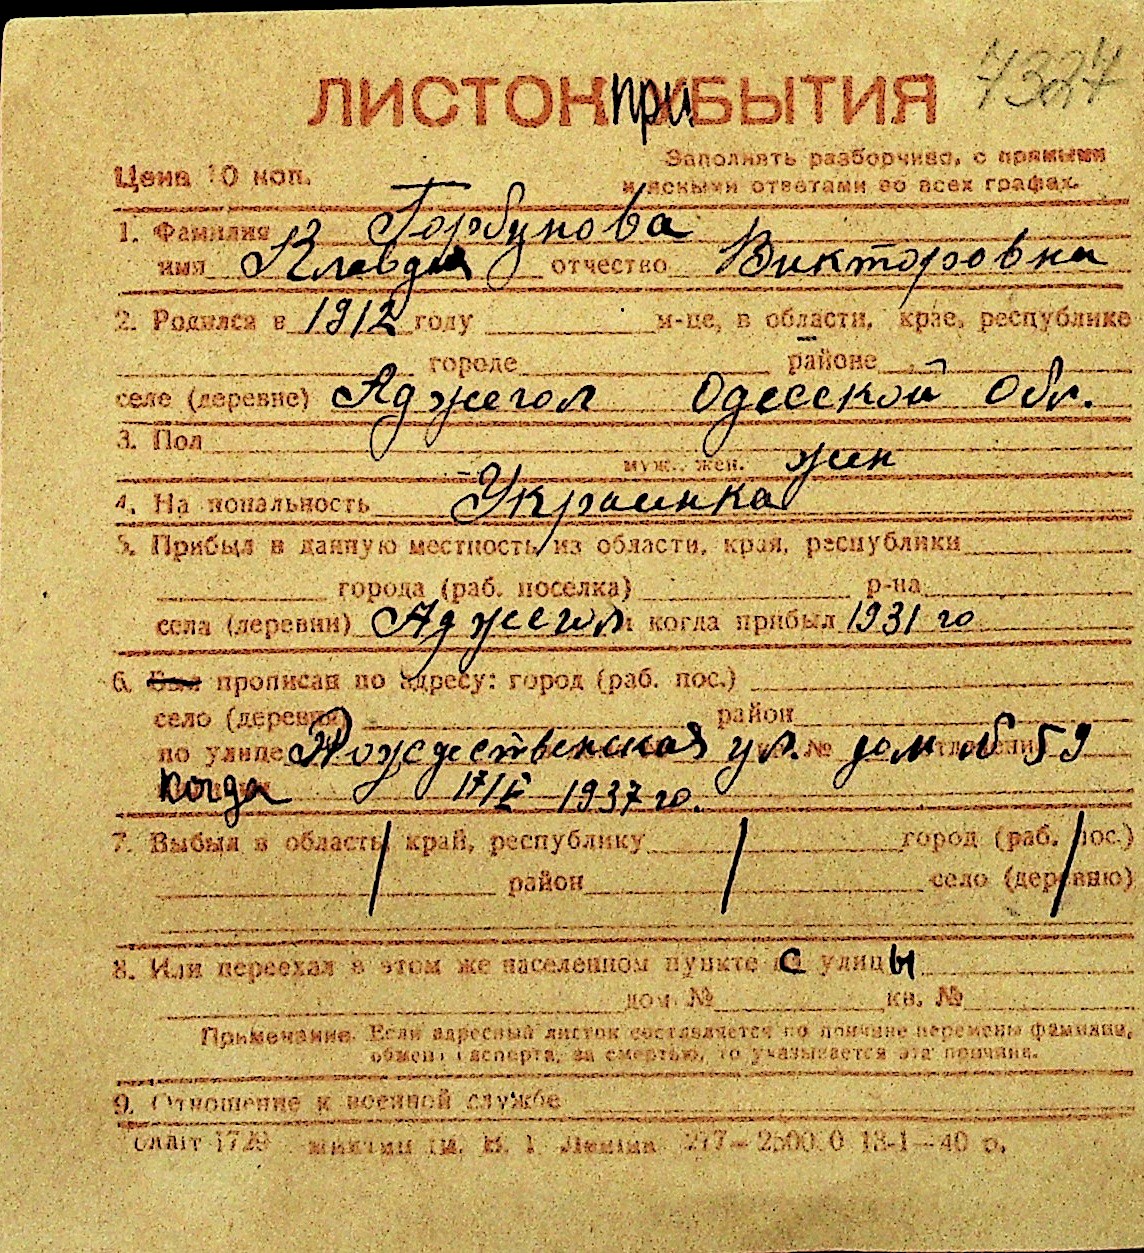 7327
ЛИСТОК ПРИБЫТИЯ
Цена 10 коп.
Заполнять разборчиво, с прямыми
и ясными ответами во всех графах.
1. Фамилия Горбунова
имя Клавдия отчество Викторовна
2. Родился в 1912 году м-це, в области, крае, республике
городе районе
селе (деревне) Аджегол Одесской Обл.
3. Пол
муж., жен. жен
4. Национальность Украинка
5. Прибыл в данную местность из области, края, республики
города (раб. поселка) р-на
села (деревни) Аджегол и когда прибыл 1931 го
6. Был прописан по адресу: город (раб. пос.)
село (деревня) район
по улице Рождественская ул. № дом № 59
когда 17/V 1937 го.
7. Выбыл в область, край, республику город (раб. пос.)
район село (деревню)
8. Или переехал в этом же населенном пункте с улицы
дом № кв. №
Примечание. Если адресный листок составляется по причине перемены фамилии,
обмена паспорта, за смертью, то указывается эта причина.
9. Отношение к военной службе
1729 им. В. И. Ленина 277—250000 13-1—40 р.